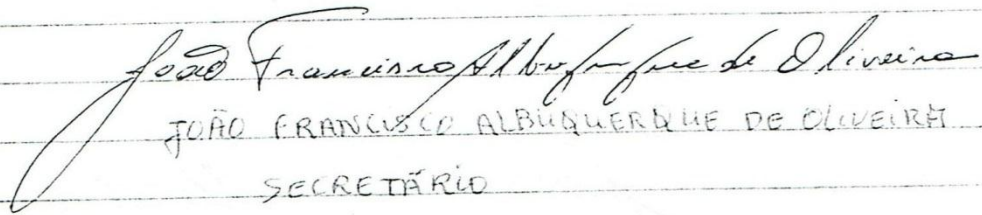 João Francisco Albuquerque de Oliveira
JOÃO FRANCISCO ALBUQUERQUE DE OLIVEIRA
SECRETÁRIO